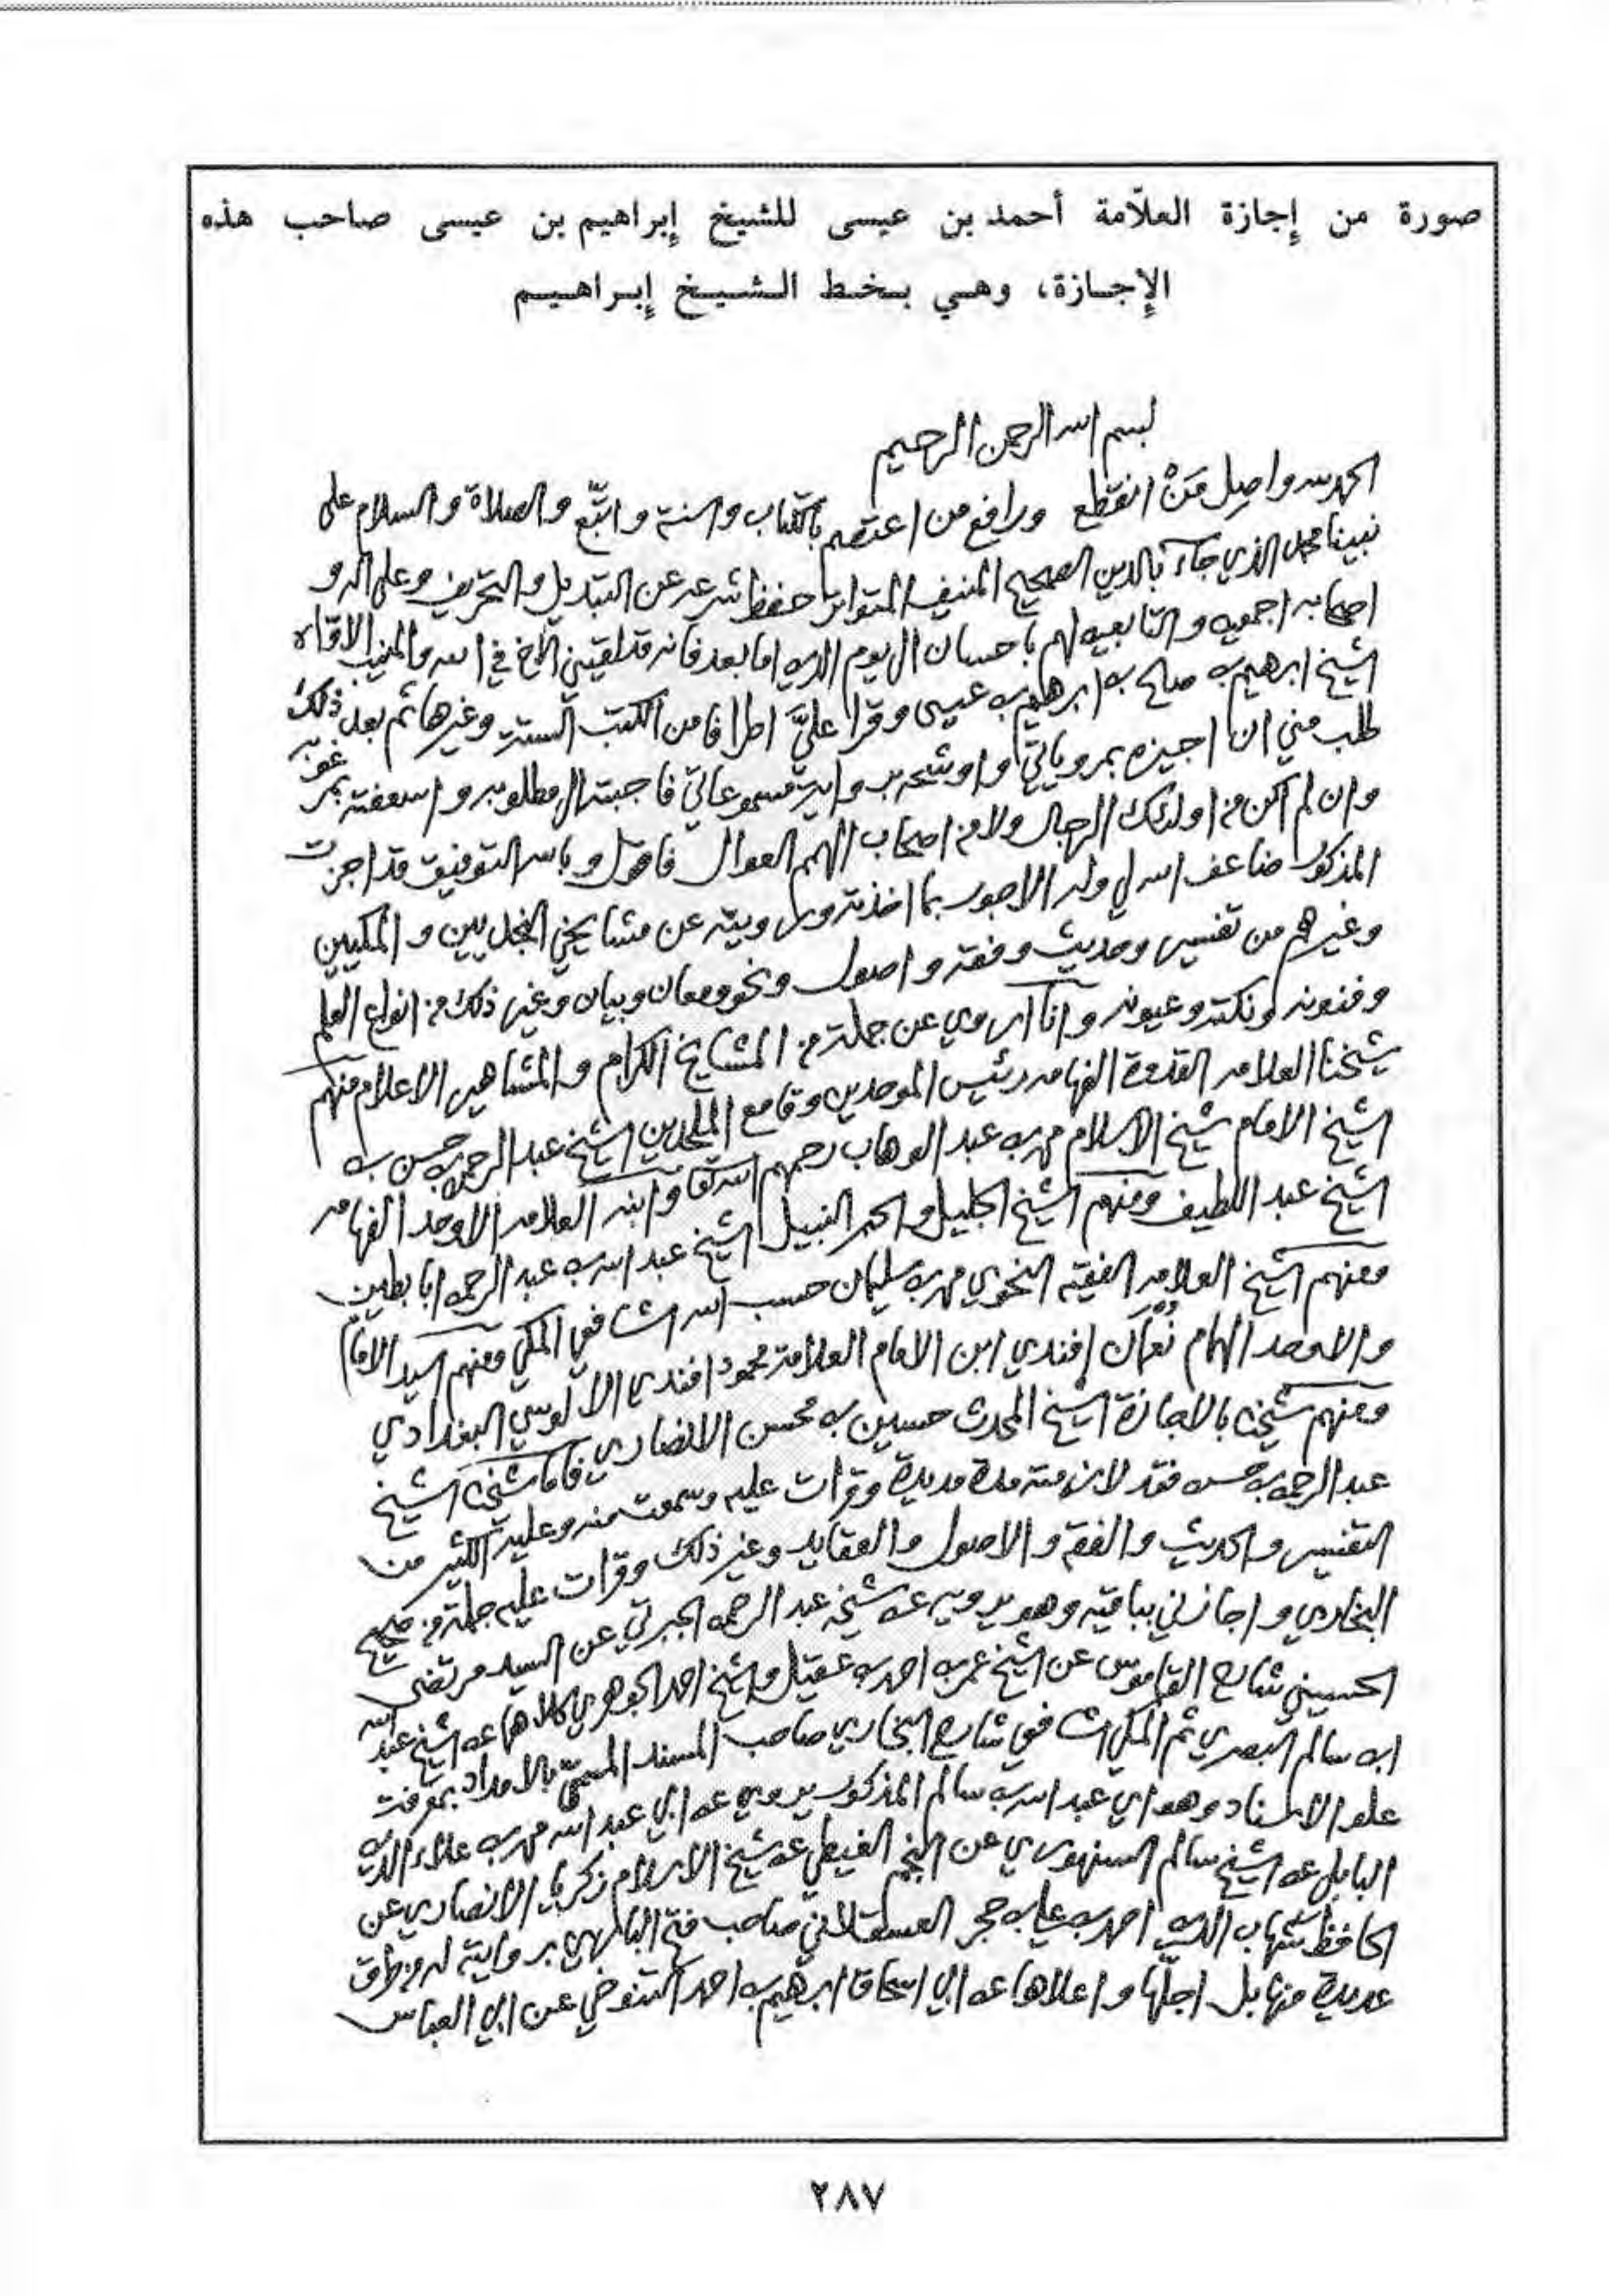 صورة من إجازة العلاّمة أحمد بن عيسى للشيخ إبراهيم بن عيسى صاحب هذه
الإجازة، وهي بخط الشيخ إبراهيم
بسم الله الرحمن الرحيم
الحمد لله واصِل مَنْ انقطع ورافع من اعتصم بالكتاب والسنة واتبّع والصلاة والسلام على
نبينا محمد الذي جآء بالدين الصحيح المنيف المتواتر حفظ شرعه عن التبديل والتحريف وعلى اله و
اصحابه اجمعين والتابعين لهم باحسان الى يوم الدين اما بعد فانه قد لقيني الأخ في الله والمنيب الاوّاه
الشيخ ابرهيم بن صالح بن ابرهيم بن عيسى وقرا عليَّ اطرافا من الكتب الستة وغيرها ثم بعد ذلك
طلب مني ان اجيزه بمروياتي واوشحه برواية مسموعاتي فاجبته الى مطلوبه واسعفته بمرغوبه
وان لم اكن من اولئك الرجال ولا من اصحاب الهمم العوال فاقول وبالله التوفيق قد اجزت
المذكور ضاعف الله لي وله الاجور بما اخذته ورويته عن مشايخي النجديين والمكيين
وغيرهم من تفسير وحديث وفقه واصول ونحو ومعان وبيان وغير ذلك من انواع العلم
وفنونه ونكته وعيونه وانآ اروي عن جملة من المشايخ الكرام والمشاهير الاعلام منهم
شيخنا العلامه القدوة الفهامه رئيس الموحدين وقامع الملحدين الشيخ عبد الرحمن بن حسن بن
الشيخ الامام شيخ الاسلام محمد بن عبد الوهاب رحمهم الله تعا وابنه العلامه الاوحد الفهامه
الشيخ عبد اللطيف ومنهم الشيخ الجليل والحبر النبيل الشيخ عبد الله بن عبد الرحمن ابا بطين
ومنهم الشيخ العلامه الفقيه النحوي محمد بن سليمان حسب الله الشافعي المكي ومنهم السيد الامام
والاوحد الهمام نُعمان افندي ابن الامام العلامة محمود افندي الالوسي البغدادي
ومنهم شيخنا بالاجازة الشيخ المحدث حسين بن محسن الانصاري فاما شيخنا الشيخ
عبد الرحمن بن حسن فقد لازمته مدة مديدة وقرات عليه وسمعت منه وعليه الكثير من
التفسير والحديث والفقه والاصول والعقايد وغير ذلك وقرات عليه جملة من صحيح
البخاري واجازني بباقيه وهو يرويه عن شيخه عبد الرحمن الجبرتي عن السيد مرتضى
الحسيني شارح القاموس عن الشيخ عمر بن احمد بن عقيل والشيخ احمد الجوهري كلاهما عن الشيخ عبد الله
ابن سالم البصري ثم المكي الشافعي شارح البخاري صاحب المسند المسمى بالامداد بمعرفة
علو الاسناد وهو اي عبد الله بن سالم المذكور يروي عن ابي عبد الله محمد بن علاء الدين
البابلي عن الشيخ سالم السنهوري عن النجم الغيطي عن شيخ الاسلام زكريا الانصاري عن
الحافظ شهاب الدين احمد بن علي بن حجر العسقلاني صاحب فتح الباري بروايته له من طرق
عديدة منها بل اجلّها واعلاها عن ابي اسحاق ابرهيم بن احمد التنوخي عن ابي العباس
٢٨٧